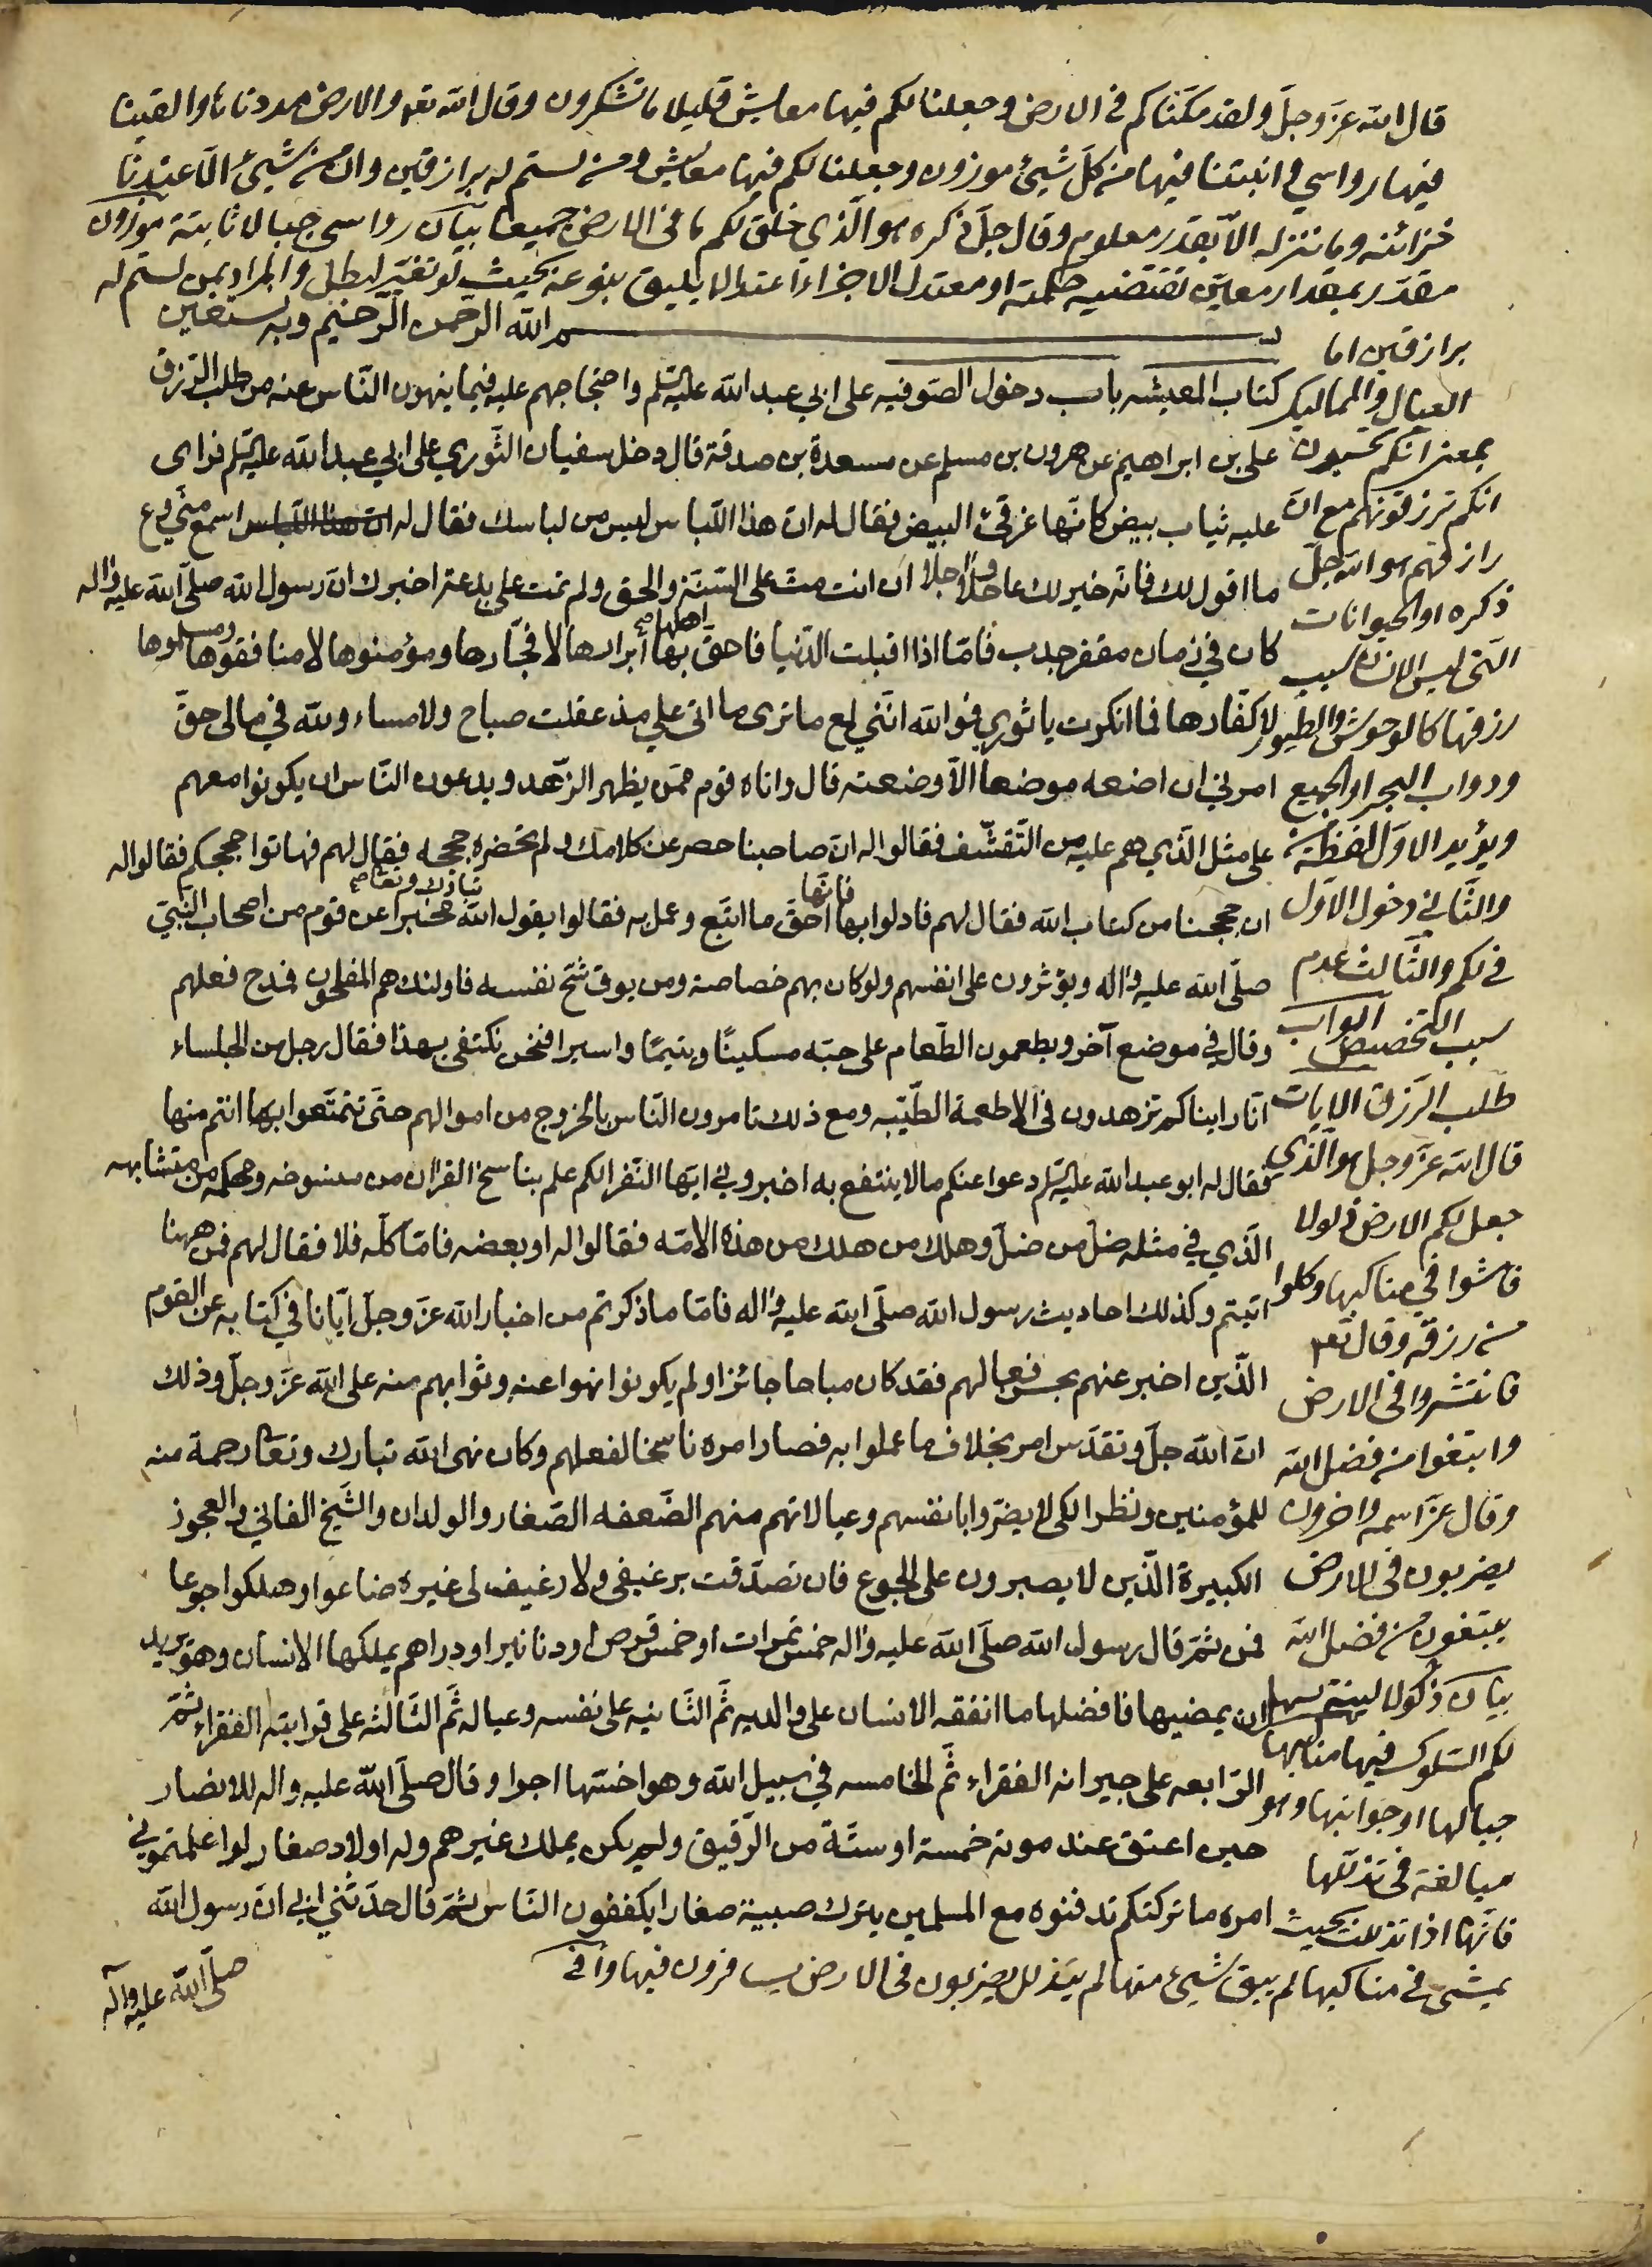 قال الله عزّ وجلّ ولقد مكّنّاكم في الارض وجعلنا لكم فيها معايش قليلا ما تشكرون وقال الله تعه والارض مددناها والقينا
فيها رواسي و انبتنا فيها من كلّ شيئ موزون وجعلنا لكم فيها معايش ومن لستم له برازقين وان من شيئ الّا عندنا
خزائنه وما ننزله الّا بقدر معلوم وقال جلّ ذكره هو الّذي خلق لكم ما في الارض جميعا بيان رواسي جبالا ثابتة موزون
مقدّر بمقدار معيّن تقتضيه حكمته او معتدل الاجزاء اعتدالا يليق بنوعه بحيث لو تغيّر لبطل والمراد بمن لستم له
برازقين اما
العيال والمماليك
بمعنى انكم تحسبون
انكم ترزقونهم مع انّ
رازقهم هو الله جلّ
ذكره او الحيوانات
الّتي ليس للانسان سبب
رزقها كالوحوش والطيور
ودواب البحر او الجميع
ويؤيد الاوّل لفظة من
والثّاني دخول الاوّل
في لكم والثّالث عدم
سبب التّخصيص ابواب
طلب الرّزق الايات
قال الله عزّ وجل هو الّذي
جعل لكم الارض ذلولا
فامشوا في مناكبها وكلوا
من رزقه وقال تعه
فانتشروا في الارض
وابتغوا من فضل الله
وقال عزّ اسمه واخرون
يضربون في الارض
يبتغون من فضل الله
بيان ذلولا لينة يسهل
لكم السّلوك فيها مناكبها
جبالها او جوانبها وهو
مبالغة في تذللها
فانّها اذا تذللت بحيث
يمشى في مناكبها لم يبق شيئ منها لم يتذلل يضربون في الارض يسافرون فيها وا في
بسم الله الرّحمن الرّحيم وبه نستعين
كتاب المعيشه باب دخول الصّوفيه على ابي عبد الله عليه السّلم واحتجاجهم عليه فيما ينهون النّاس عنه من طلب الرّزق
علي بن ابراهيم عن هرون بن مسلم عن مسعدة بن صدقة قال دخل سفيان الثّوري على ابي عبد الله عليه السّلم فراى
عليه ثياب بيض كانّها غرقئ البيض فقال له انّ هذا اللّباس ليس من لباسك فقال له ان هذا اللّباس اسمع منّي وع
ما اقول لك فانّه خير لك عاجلا واجلا ان انت متّ على السّنّة والحق ولم تمت على بدعة اخبرك انّ رسول الله صلّى الله عليه واله
كان في زمان مقفر جدب فامّا اذا اقبلت الدّنيا فاحقّ اهلها بها ابرارها لا فجّارها ومؤمنوها لا منافقوها ومسلموها
لا كفّارها فما انكرت يا ثوري فوالله انّني لمع ما ترى ما اتى علي مذ عقلت صباح ولا مساء ولله في مالي حقّ
امرني ان اضعه موضعا الّا وضعته قال واتاه قوم ممّن يظهر الزّهد ويدعون النّاس ان يكونوا معهم
على مثل الّذي هم عليه من التّقشّف فقالوا له انّ صاحبنا حصر عن كلامك ولم تحضره حججه فقال لهم فهاتوا حججكم فقالوا له
ان حججنا من كتاب الله فقال لهم فادلوا بها فانّها احقّ ما اتّبع وعمل به فقالوا يقول الله تبارك وتعا مخبرا عن قوم من اصحاب النّبيّ
صلّى الله عليه واله ويؤثرون على انفسهم ولو كان بهم خصاصة ومن يوق شحّ نفسه فاولئك هم المفلحون فمدح فعلهم
وقال في موضع آخر ويطعمون الطّعام على حبّه مسكينًا ويتيمًا واسيرا فنحن نكتفي بهذا فقال رجل من الجلساء
انّا رايناكم تزهدون في الاطعمة الطّيّبه ومع ذلك تامرون النّاس بالخروج من اموالهم حتّى تتمتّعوا بها انتم منها
فقال له ابو عبد الله عليه السّلم دعوا عنكم ما لا ينتفع به اخبروني ايّها النّفر الكم علم بناسخ القران من منسوخه ومحكمه من متشابهه
الّذي في مثله ضلّ من ضلّ وهلك من هلك من هذه الامّه فقالوا له او بعضه فامّا كلّه فلا فقال لهم فمن ههنا
اتيتم وكذلك احاديث رسول الله صلّى الله عليه واله فامّا ما ذكرتم من اخبار الله عزّ وجلّ ايّانا في كتابه عن القوم
الّذين اخبر عنهم بحسن فعالهم فقد كان مباحا جائزا ولم يكونوا نهوا عنه وثوابهم منه على الله عزّ وجلّ وذلك
انّ الله جلّ وتقدّس امر بخلاف ما عملوا به فصار امره ناسخا لفعلهم وكان نهى الله تبارك وتعا رحمة منه
للمؤمنين ونظرا لكى لا يضرّوا بانفسهم وعيالاتهم منهم الضّعفه الصّغار والولدان والشّيخ الفاني والعجوز
الكبيرة الّذين لا يصبرون على الجوع فان تصدّقت برغيفي ولا رغيف لي غيره ضاعوا وهلكوا جوعا
فمن ثمّ قال رسول الله صلّى الله عليه واله خمس تمرات او خمس قرص او دنانير او دراهم يملكها الانسان وهو يريد
ان يمضيها فافضلها ما انفقه الانسان على والديه ثمّ الثّانيه على نفسه وعياله ثمّ الثّالثه على قرابته الفقراء ثمّ
الرّابعه على جيرانه الفقراء ثمّ الخامسه في سبيل الله وهو اخسّها اجرا وقال صلّى الله عليه واله للانصار
حين اعتق عند موته خمسة او ستّة من الرّقيق ولم يكن يملك غيرهم وله اولاد صغار لو اعلمتموني
امره ما تركتكم تدفنوه مع المسلمين يترك صبية صغارا يكففون النّاس ثمّ قال حدّثني ابي انّ رسول الله
صلّى الله عليه وآله